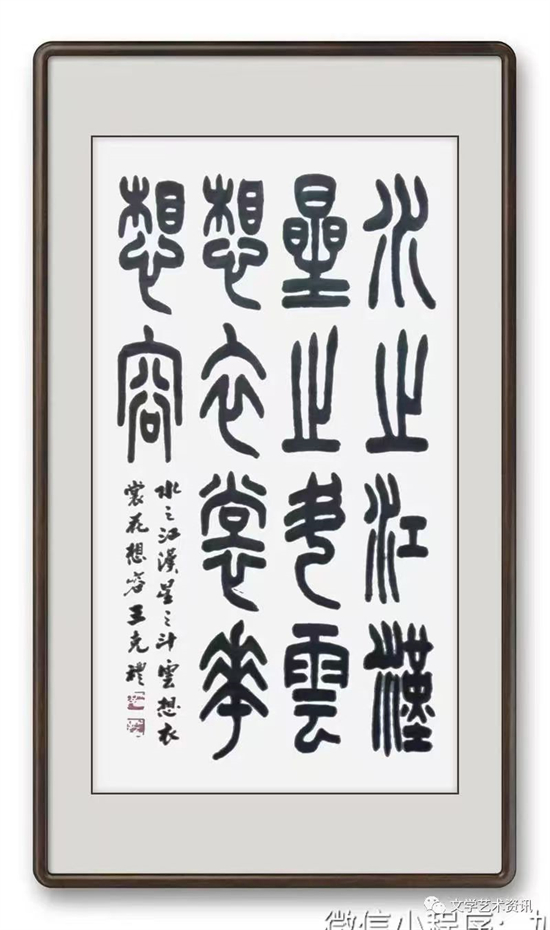 水之江漢
星之斗雲
想衣裳華
想容
水之江漢星之斗雲想衣
裳花想容王克禮
文学艺术资讯
微信小程序:九